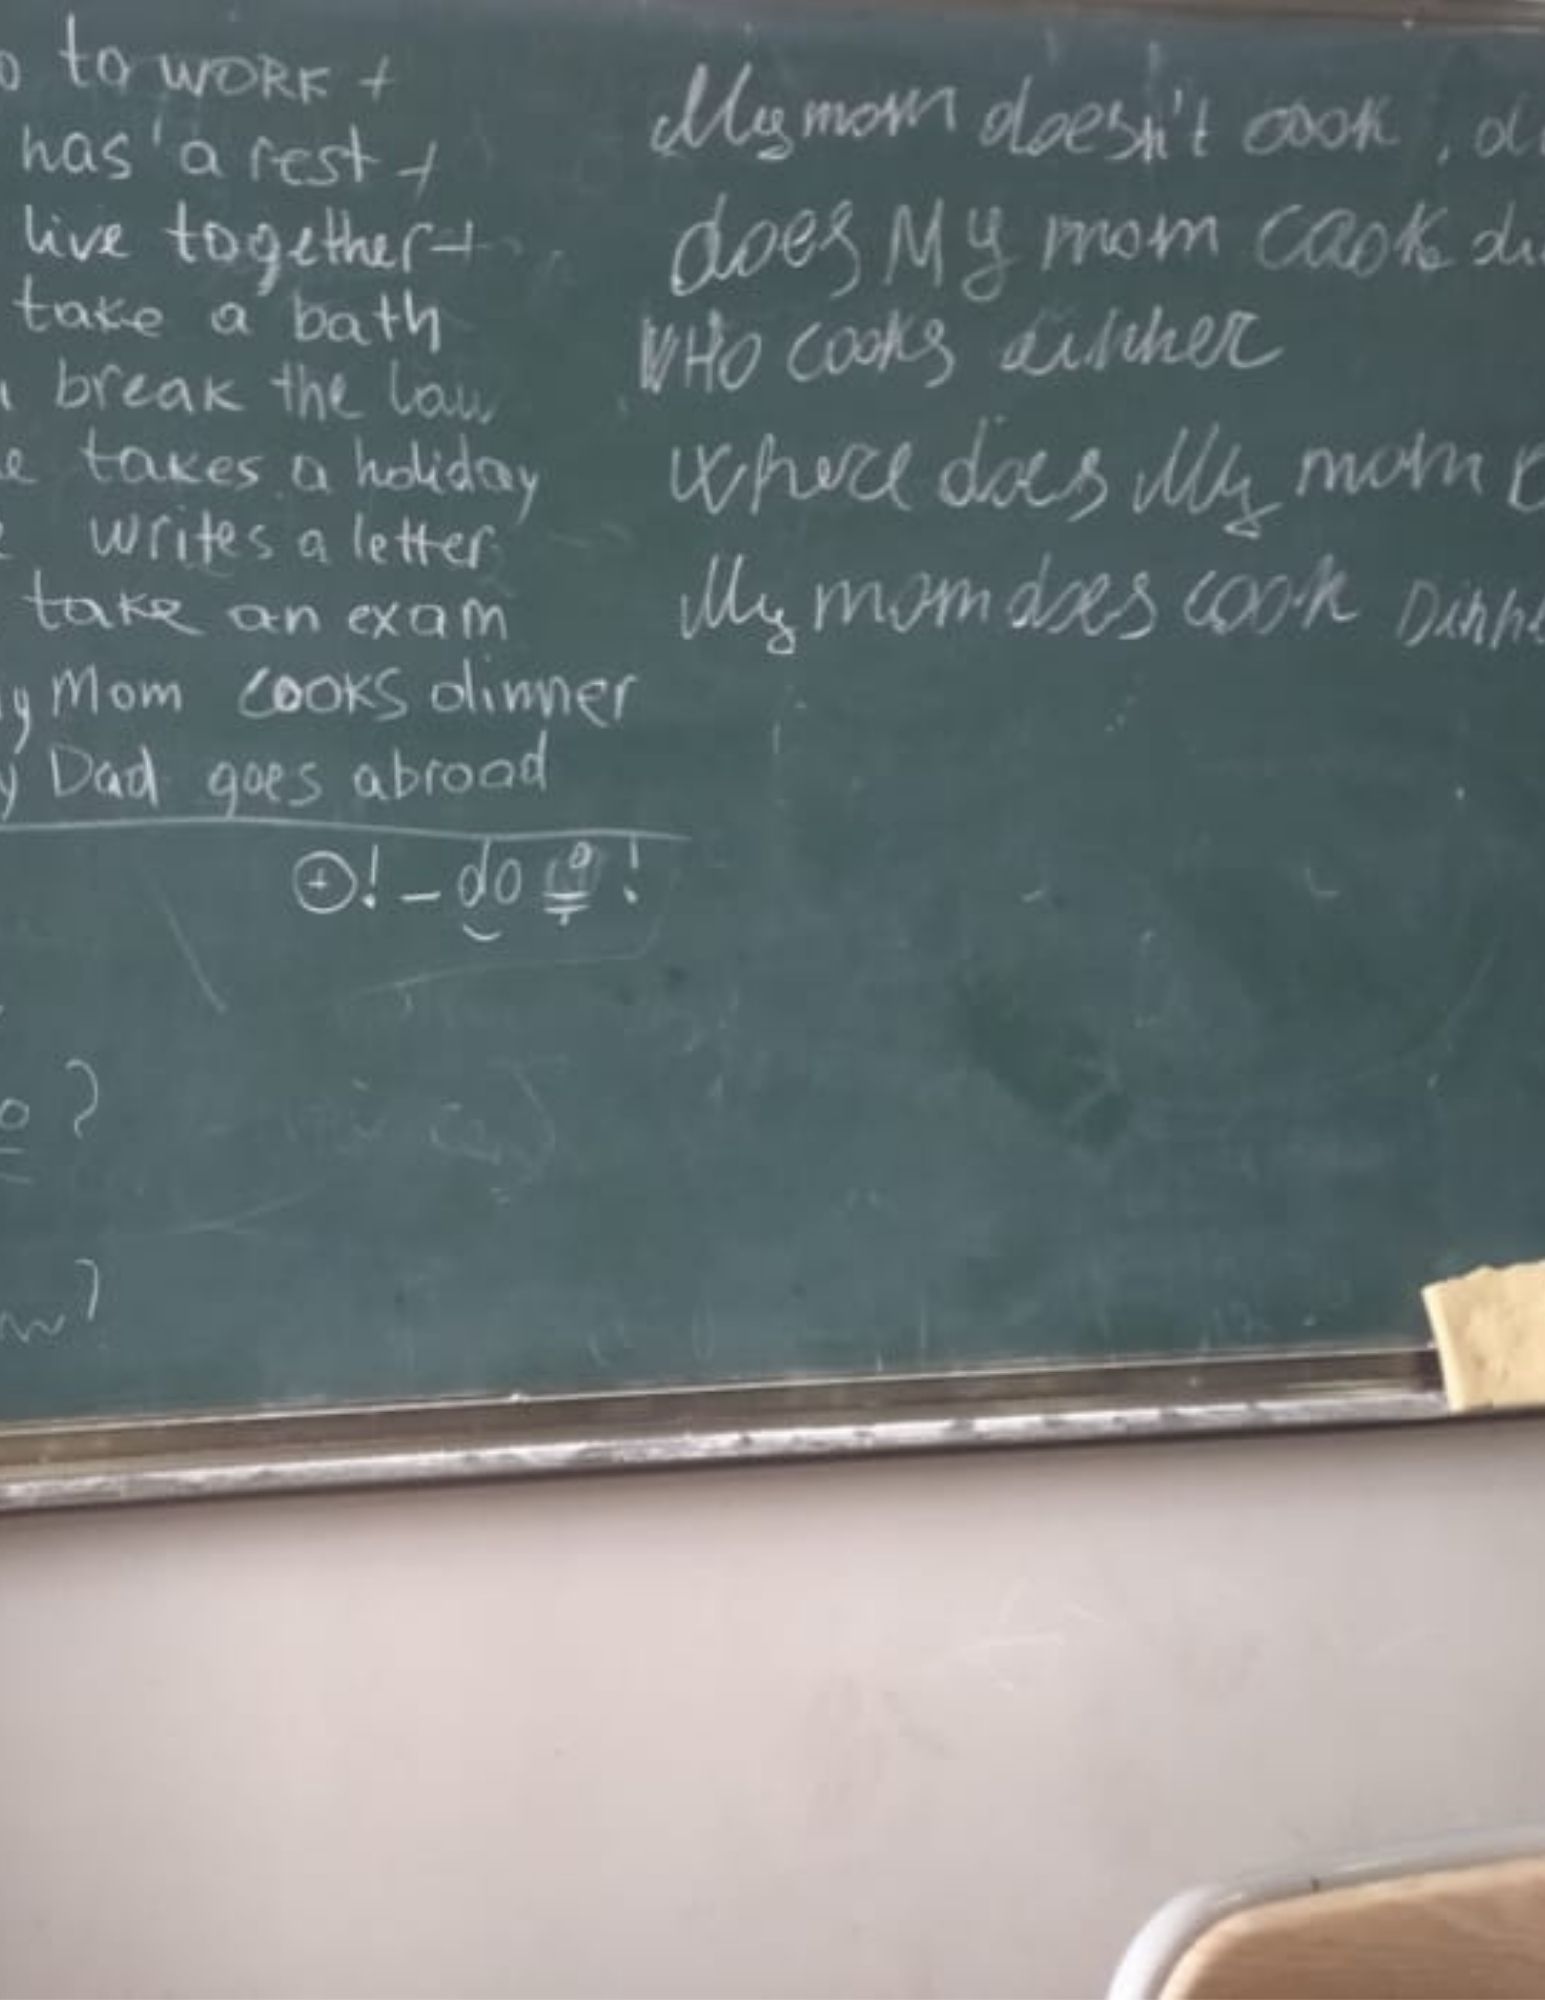 to WORK +
has a rest +
live together +
take a bath
break the law
takes a holiday
writes a letter
take an exam
Mom cooks dinner
Dad goes abroad
+! - do !
?
?
My mom doesn't cook,
does My mom cook
WHO cooks dinner
where does My mom
My mom does cook